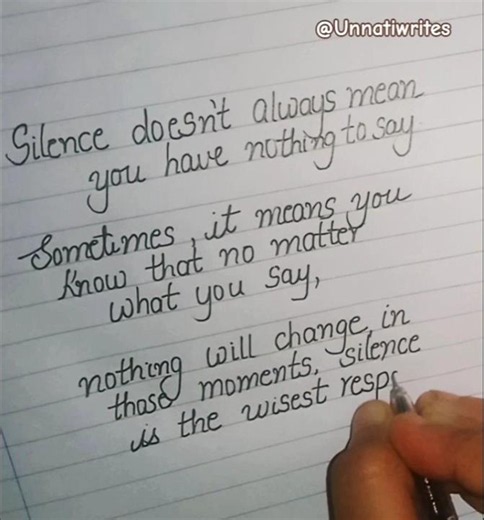 @Unnatiwrites
Silence doesn't always mean
you have nothing to say
Sometimes, it means you
Know that no matter
what you say,
nothing will change, in
those moments, silence
is the wisest resp